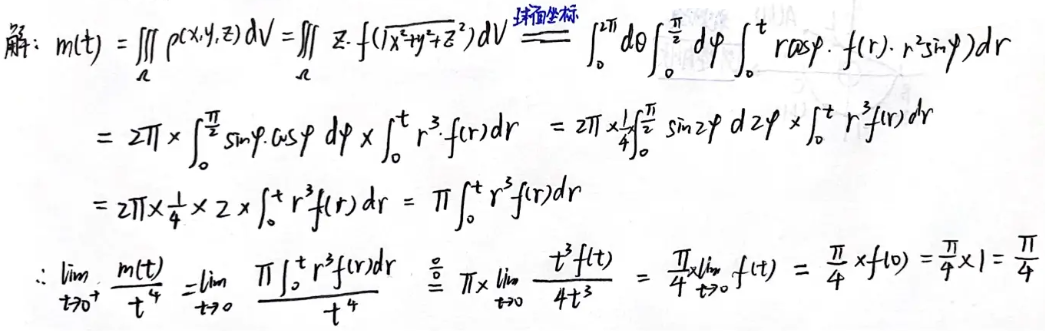 解: m(t) = ∭_Ω ρ(x,y,z) dV = ∭_Ω z·f(√(x²+y²+z²)) dV ══(球面坐标) ∫_0^{2π} dθ ∫_0^{π/2} dφ ∫_0^t rcosφ · f(r) · r² sinφ) dr
= 2π × ∫_0^{π/2} sinφ·cosφ dφ × ∫_0^t r³·f(r) dr = 2π × 1/4 ∫_0^{π/2} sin2φ d2φ × ∫_0^t r³f(r) dr
= 2π × 1/4 × 2 × ∫_0^t r³f(r) dr = π ∫_0^t r³f(r) dr
∴ lim_{t→0⁺} m(t)/t⁴ = lim_{t→0} (π ∫_0^t r³f(r) dr)/t⁴ =(0/0) π × lim_{t→0} t³f(t)/4t³ = π/4 × lim_{t→0} f(t) = π/4 × f(0) = π/4 × 1 = π/4